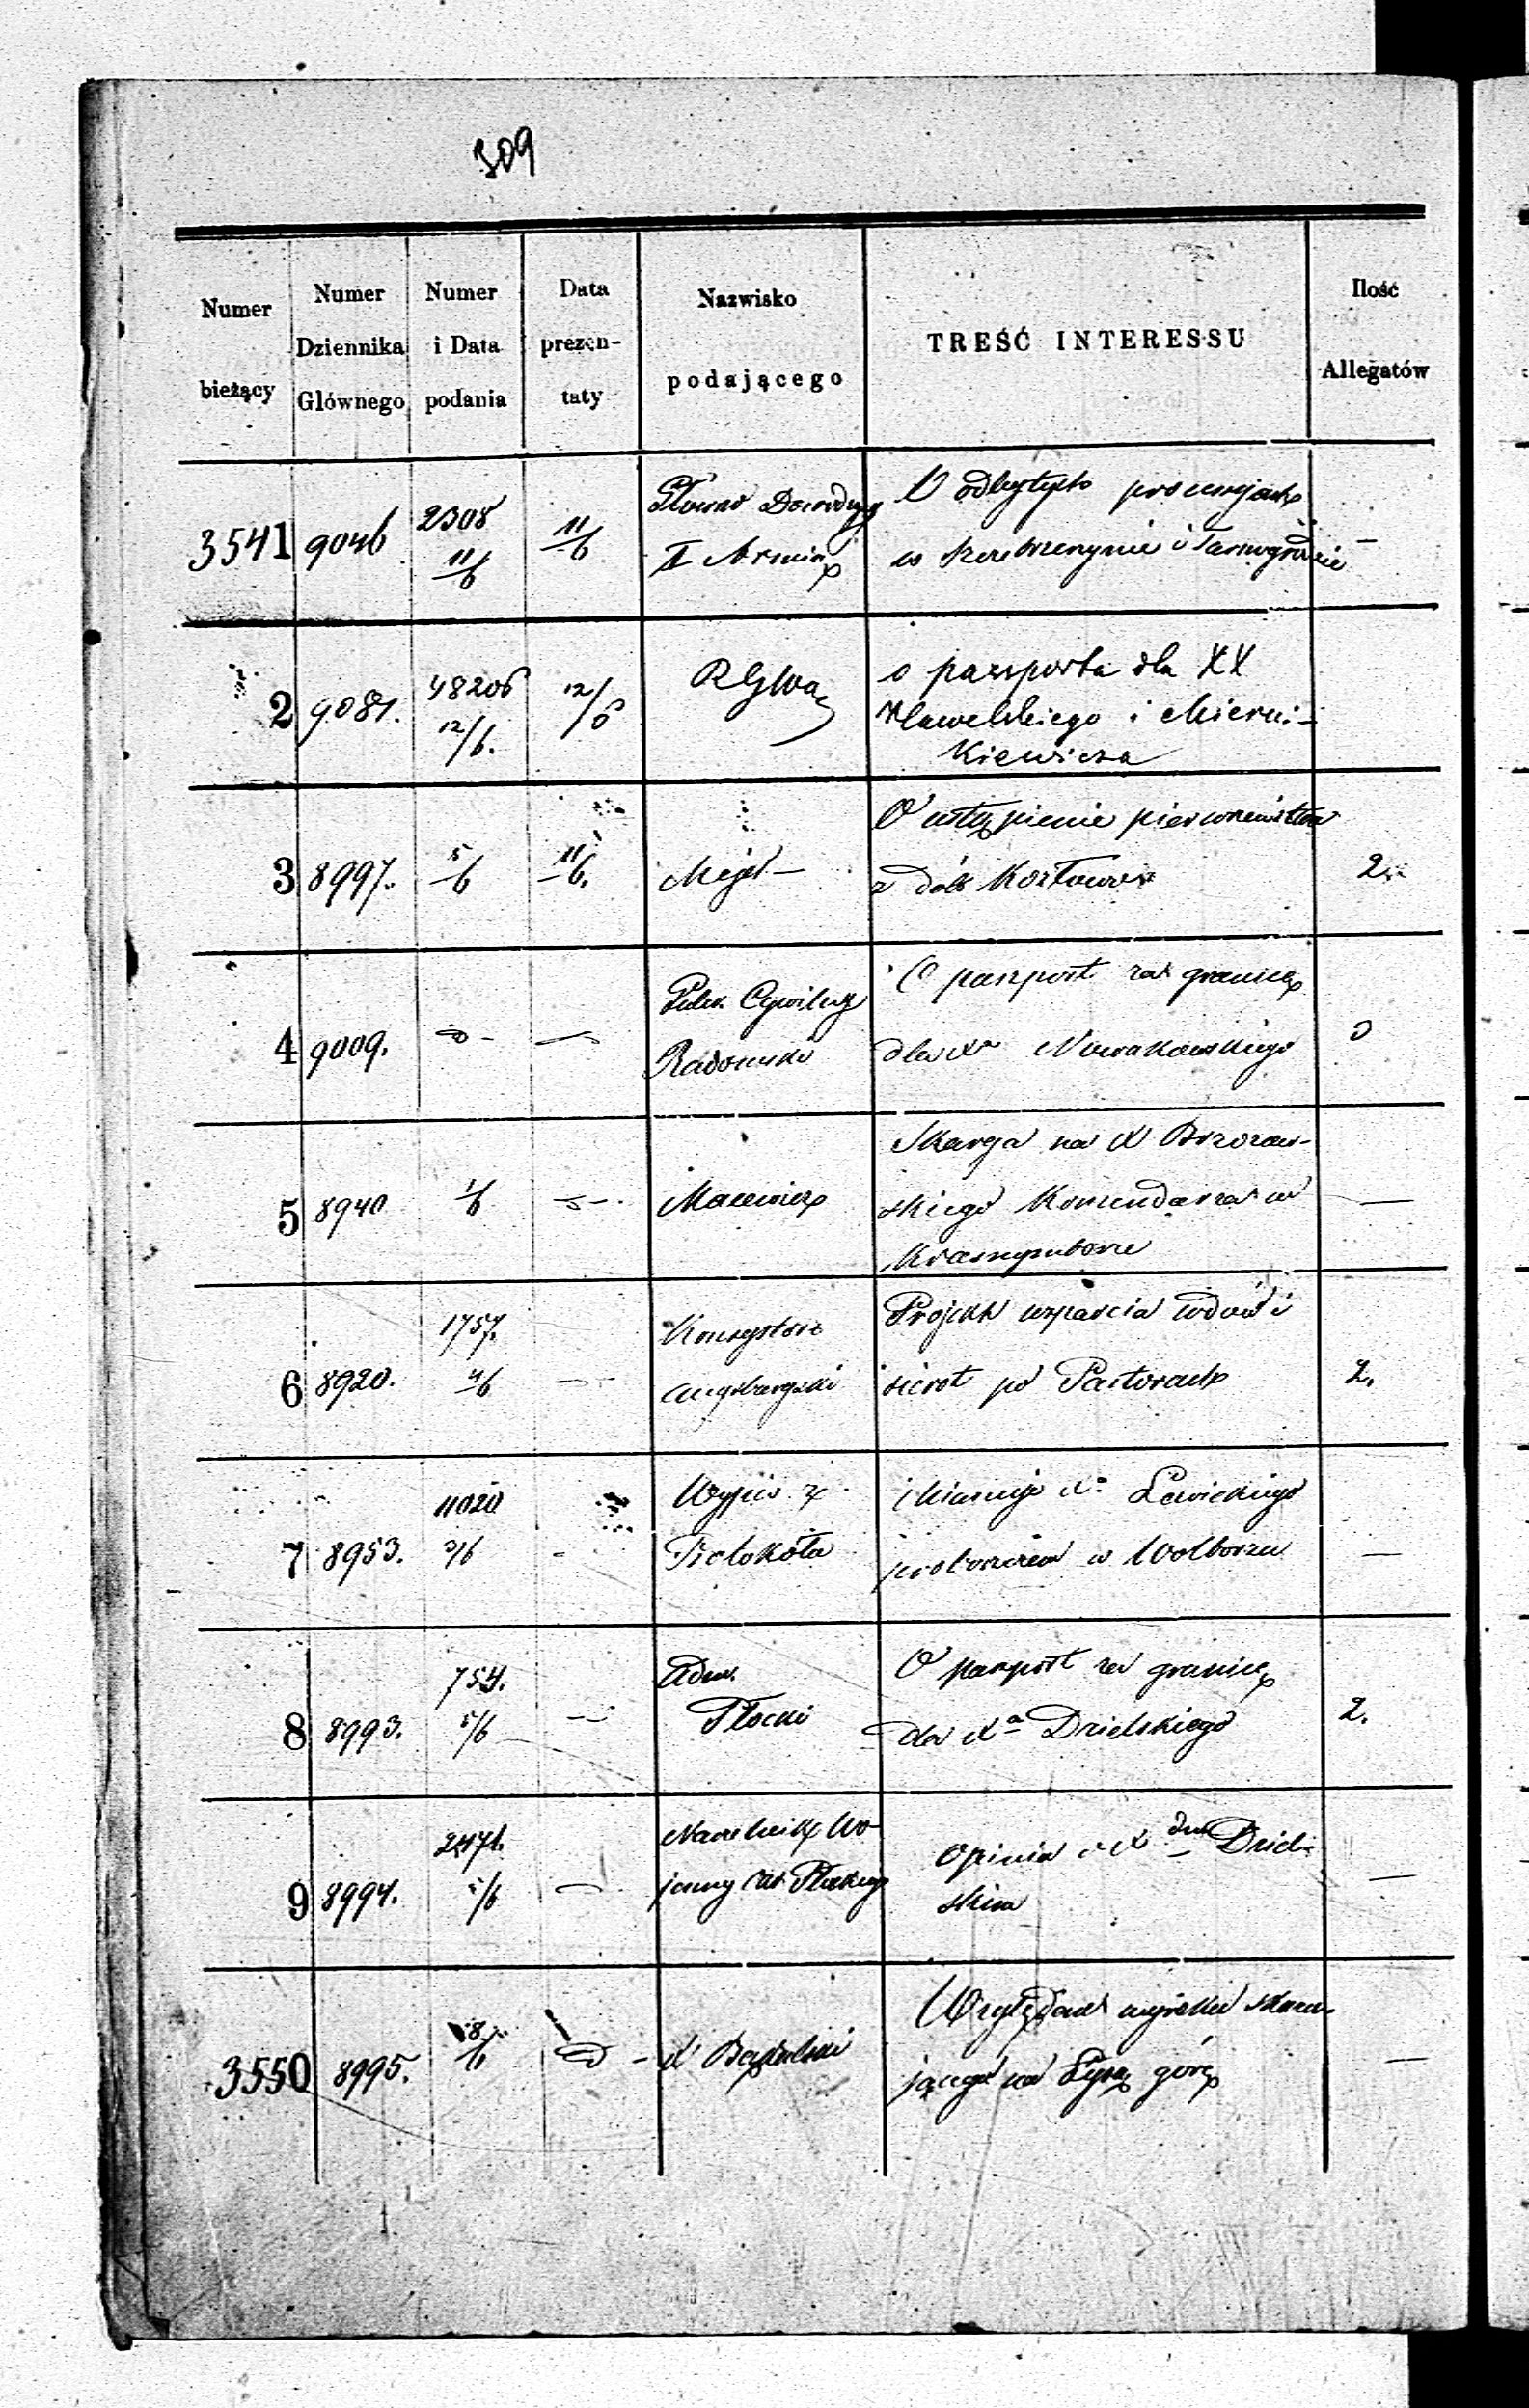 309
Numer bieżący
Numer Dziennika Głównego
Numer i Data podania
Data prezentaty
Nazwisko podającego
TREŚĆ INTERESSU
Ilość Allegatów
3541 9046 2308 11/6 11/6
Główno Dowodzący
I Armią
O odbytych procesyjach
w Szczebrzeszynie i Tarnogrodzie
—
2 9081. 48206 12/6. 12/6
o paszporta dla XX
i Mierni-
kiewicza
3 8997. 5/6 11/6.
O ustąpienie pierwszeństwa
z dóbr Kozłowo
2
4 9009.
Cywilny
Radomski
O paszport za granicę
dla Xa Nowakowskiego
5 8940 1/6
Macewicz
Skarga na X Brzozow-
skiego Komendarza w
—
6 8920. 1757. 4/6
Konsystorz
Augsburgski
Projekt wsparcia wdów i
sierot po Pastorach
2.
7 8953. 11020 3/6
Wypis z
Protokóła
Xa Lewickiego
proboszcza w Wolborzu
—
8 8993. 754. 5/6
Adm.
Płocki
O paszport za granicę
dla Xa Dzielskiego
2.
9 8994. 2471. 5/6
Naczelnik Wo-
jenny Płockiego
Opinia o X Dziel-
skim
—
3550 8995. 8/6
X
Względem wyroku skazu-
jącego na Łysą górę
—